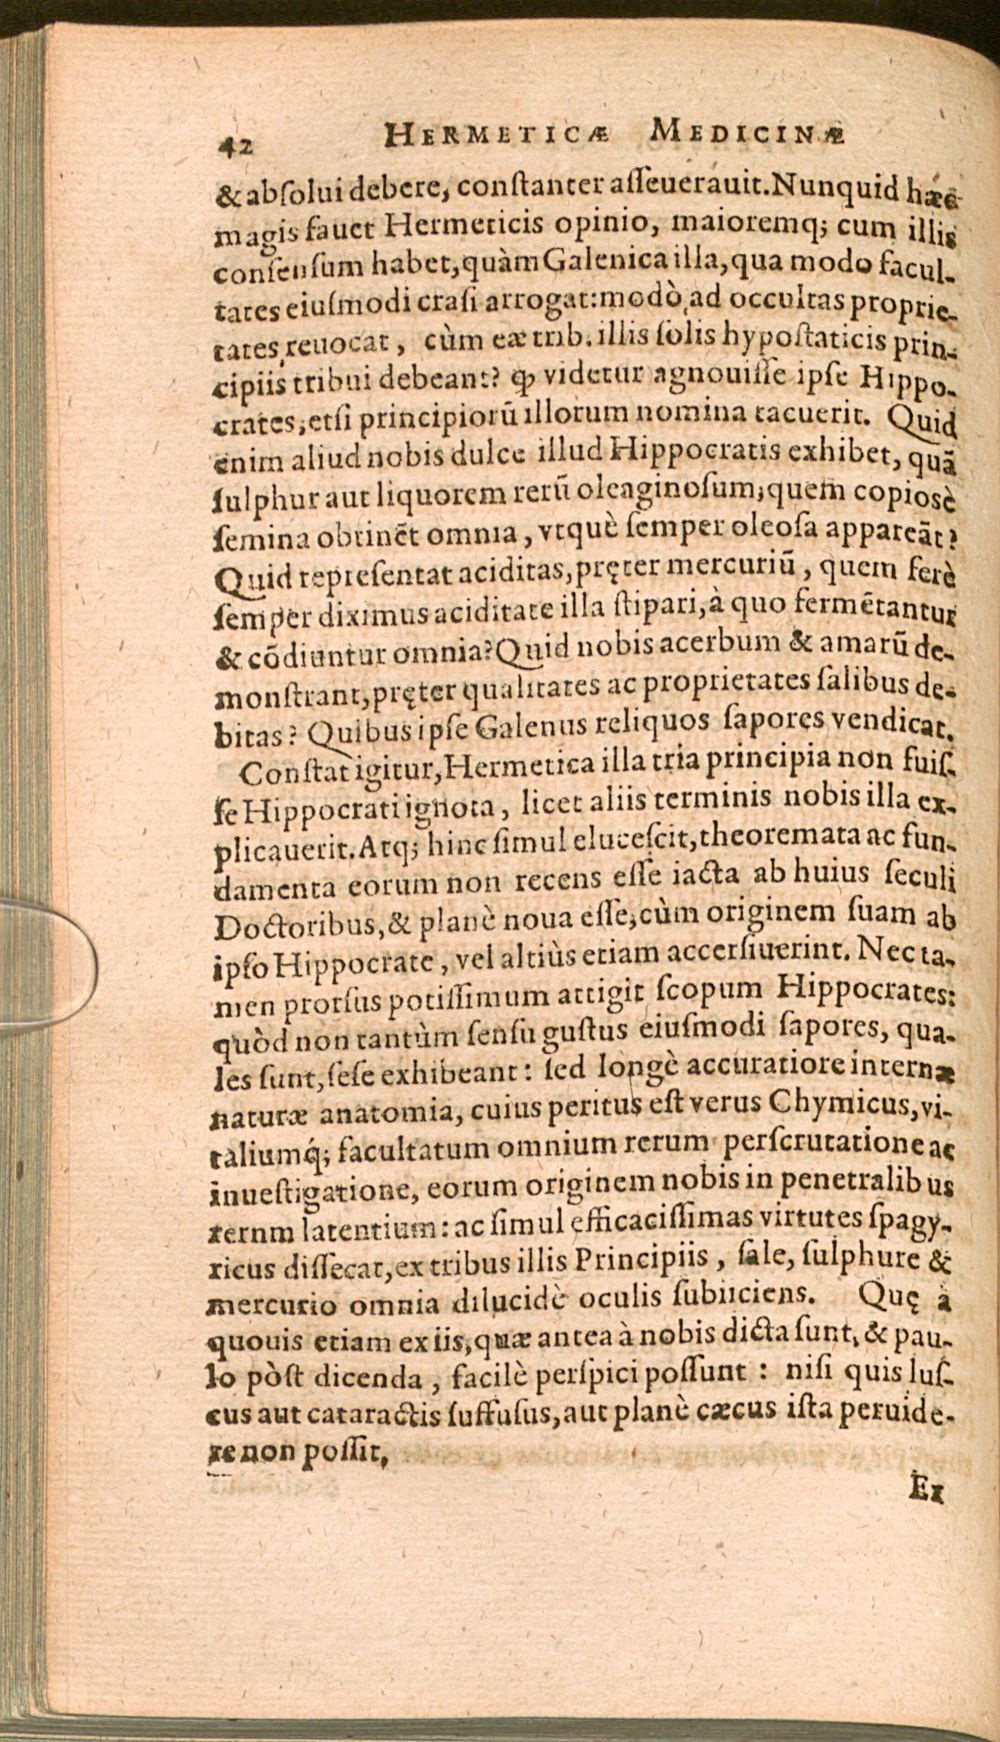 42 HERMETICÆ MEDICINÆ
& abſolui debere, conſtanter aſſeuerauit. Nunquid hæc
magis fauet Hermeticis opinio, maioremq; cum illis
conſenſum habet, quàm Galenica illa, qua modo facul-
tates eiuſmodi craſi arrogat: modò ad occultas proprie-
tates reuocat, cùm eæ trib. illis ſolis hypoſtaticis prin-
cipiis tribui debeant? ꝙ videtur agnouiſſe ipſe Hippo-
crates, etſi principiorũ illorum nomina tacuerit. Quid
enim aliud nobis dulce illud Hippocratis exhibet, quã
ſulphur aut liquorem rerũ oleaginoſum, quem copioſè
ſemina obtinẽt omnia, vtquè ſemper oleoſa appareãt?
Quid repreſentat aciditas, pręter mercuriũ, quem ferè
ſemper diximus aciditate illa ſtipari, à quo fermẽtantur
& cõdiuntur omnia? Quid nobis acerbum & amarũ de-
monſtrant, pręter qualitates ac proprietates ſalibus de-
bitas? Quibus ipſe Galenus reliquos ſapores vendicat.
Conſtat igitur, Hermetica illa tria principia non fuiſ-
ſe Hippocrati ignota, licet aliis terminis nobis illa ex-
plicauerit. Atq; hinc ſimul eluceſcit, theoremata ac fun-
damenta eorum non recens eſſe iacta ab huius ſeculi
Doctoribus, & planè noua eſſe, cùm originem ſuam ab
ipſo Hippocrate, vel altiùs etiam accerſiuerint. Nec ta-
men prorſus potiſſimum attigit ſcopum Hippocrates:
quòd non tantùm ſenſu guſtus eiuſmodi ſapores, qua-
les ſunt, ſeſe exhibeant: ſed longè accuratiore internæ
naturæ anatomia, cuius peritus eſt verus Chymicus, vi-
taliumq́; facultatum omnium rerum perſcrutatione ac
inueſtigatione, eorum originem nobis in penetralibus
rernm latentium: ac ſimul efficaciſſimas virtutes ſpagy-
ricus diſſecat, ex tribus illis Principiis, ſale, ſulphure &
mercurio omnia dilucidè oculis ſubiiciens. Quę à
quouis etiam ex iis, quæ antea à nobis dicta ſunt, & pau-
lo pòſt dicenda, facilè perſpici poſſunt: niſi quis luſ-
cus aut cataractis ſuffuſus, aut planè cæcus iſta peruide-
re non poſſit.
Ex